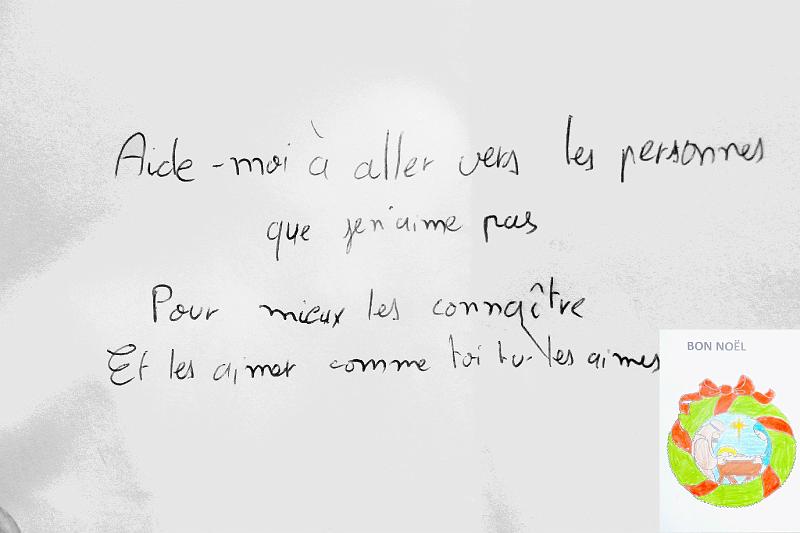 Aide-moi à aller vers les personnes
que je n'aime pas
Pour mieux les connaître
Et les aimer comme toi tu les aimes
BON NOËL